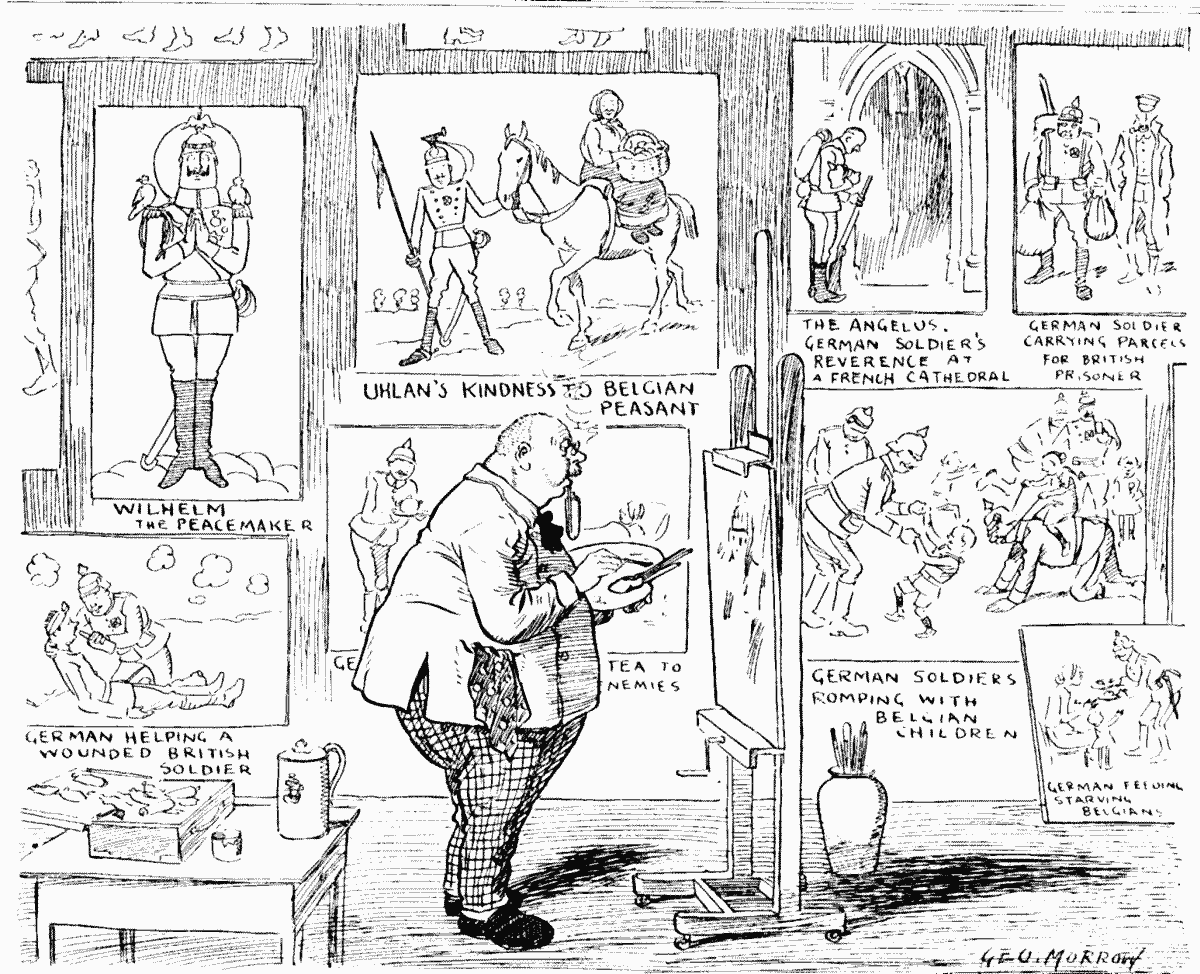 WILHELM
THE PEACEMAKER
UHLAN'S KINDNESS TO BELGIAN
PEASANT
THE ANGELUS.
GERMAN SOLDIER'S
REVERENCE AT
A FRENCH CATHEDRAL
GERMAN SOLDIER
CARRYING PARCELS
FOR BRITISH
PRISONER
GERMAN HELPING A
WOUNDED BRITISH
SOLDIER
GE TEA TO
NEMIES
GERMAN SOLDIERS
ROMPING WITH
BELGIAN
CHILDREN
GERMAN FEEDING
STARVING
BELGIANS
GEO. MORROW